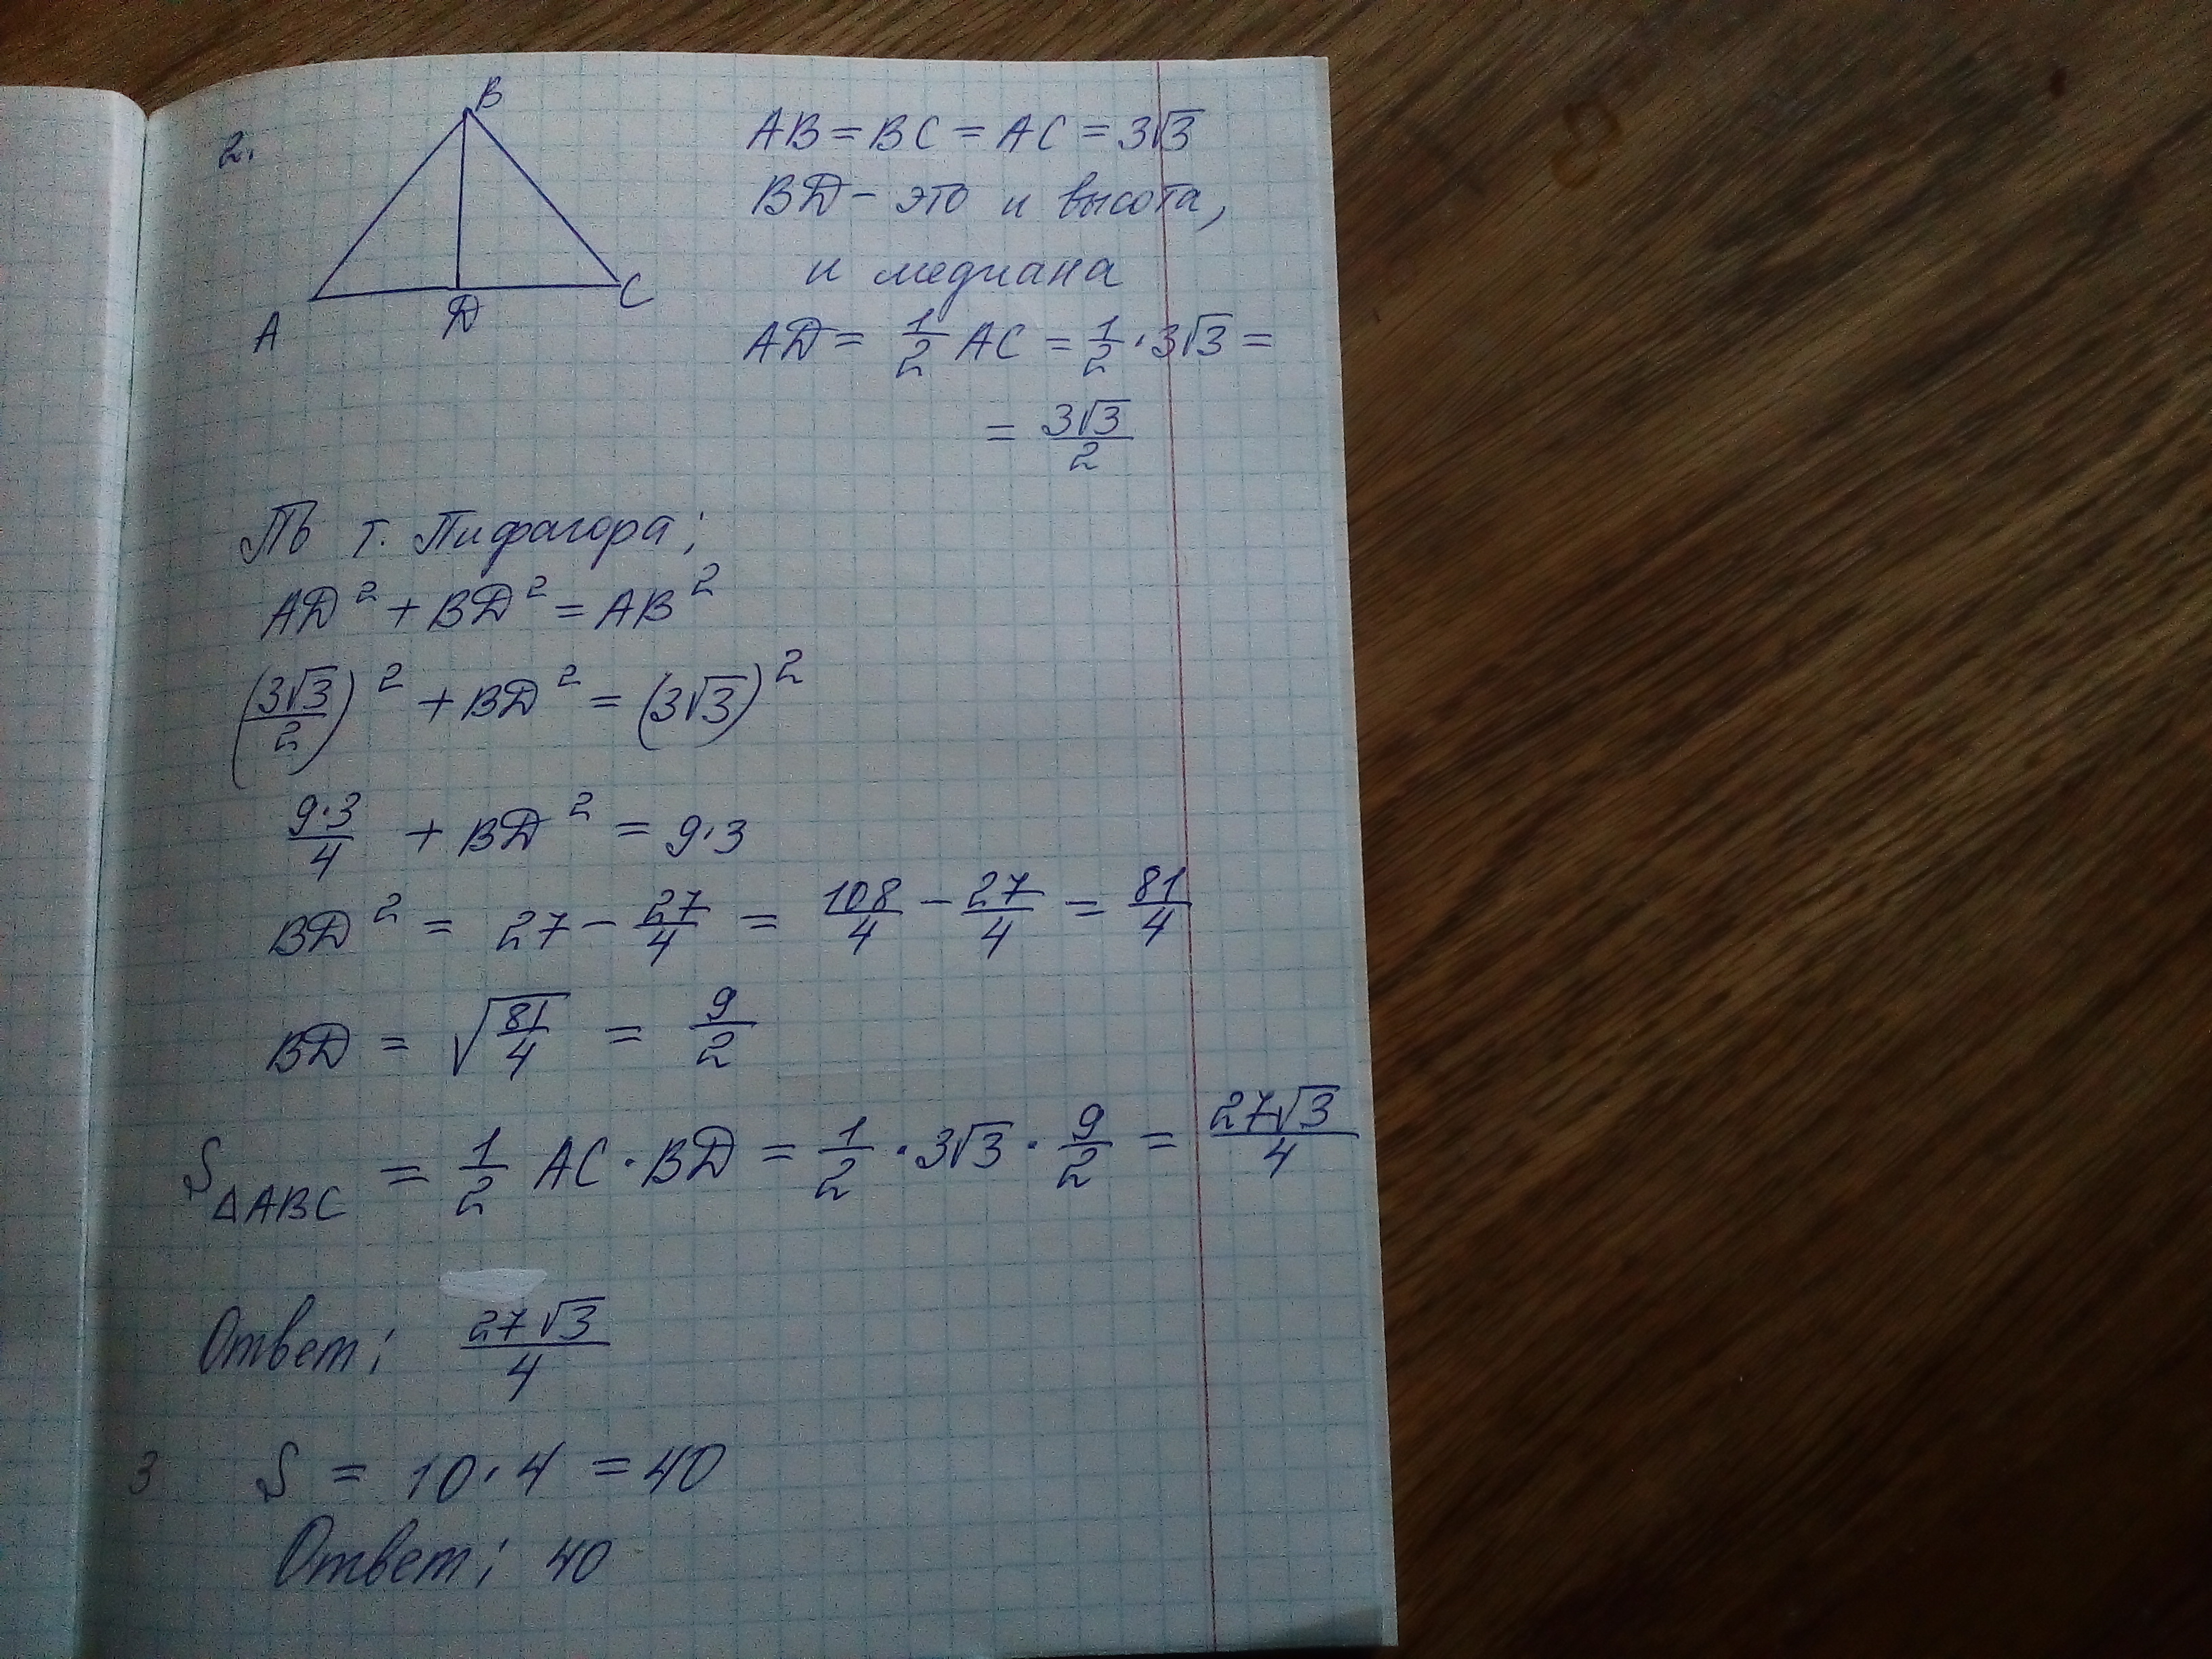 2.
B
A
D
C
AB = BC = AC = 3√3
BD - это и высота,
и медиана
AD = 1/2 AC = 1/2 · 3√3 =
= 3√3/2
По т. Пифагора;
AD² + BD² = AB²
(3√3/2)² + BD² = (3√3)²
9·3/4 + BD² = 9·3
BD² = 27 - 27/4 = 108/4 - 27/4 = 81/4
BD = √(81/4) = 9/2
S△ABC = 1/2 AC · BD = 1/2 · 3√3 · 9/2 = 27√3/4
Ответ; 27√3/4
3 S = 10·4 = 40
Ответ; 40